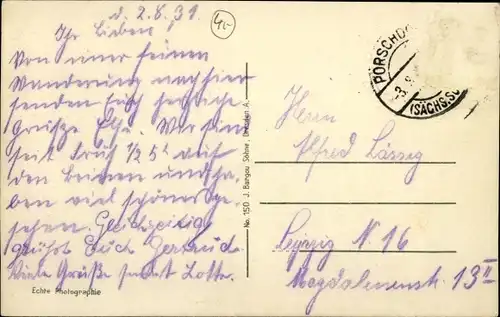 d. 2.8.31.
Ihr Lieben!
Von einer feinen
Wanderung nach hier
senden Euch herzliche
Grüße Wir sind
seit früh ½ 5 auf
den Beinen und ha-
ben viel schönes ge-
sehen. Gleichzeitig
grüßt Euch Gertrud.
Viele Grüße sendet Lotte.
Echte Photographie
No. 150 J. Bangou Söhne, Dresden A.
PORSCHD
(SÄCHS.SC
Herrn
Alfred Lässig
Leipzig N. 16
Magdalenenstr. 13 II